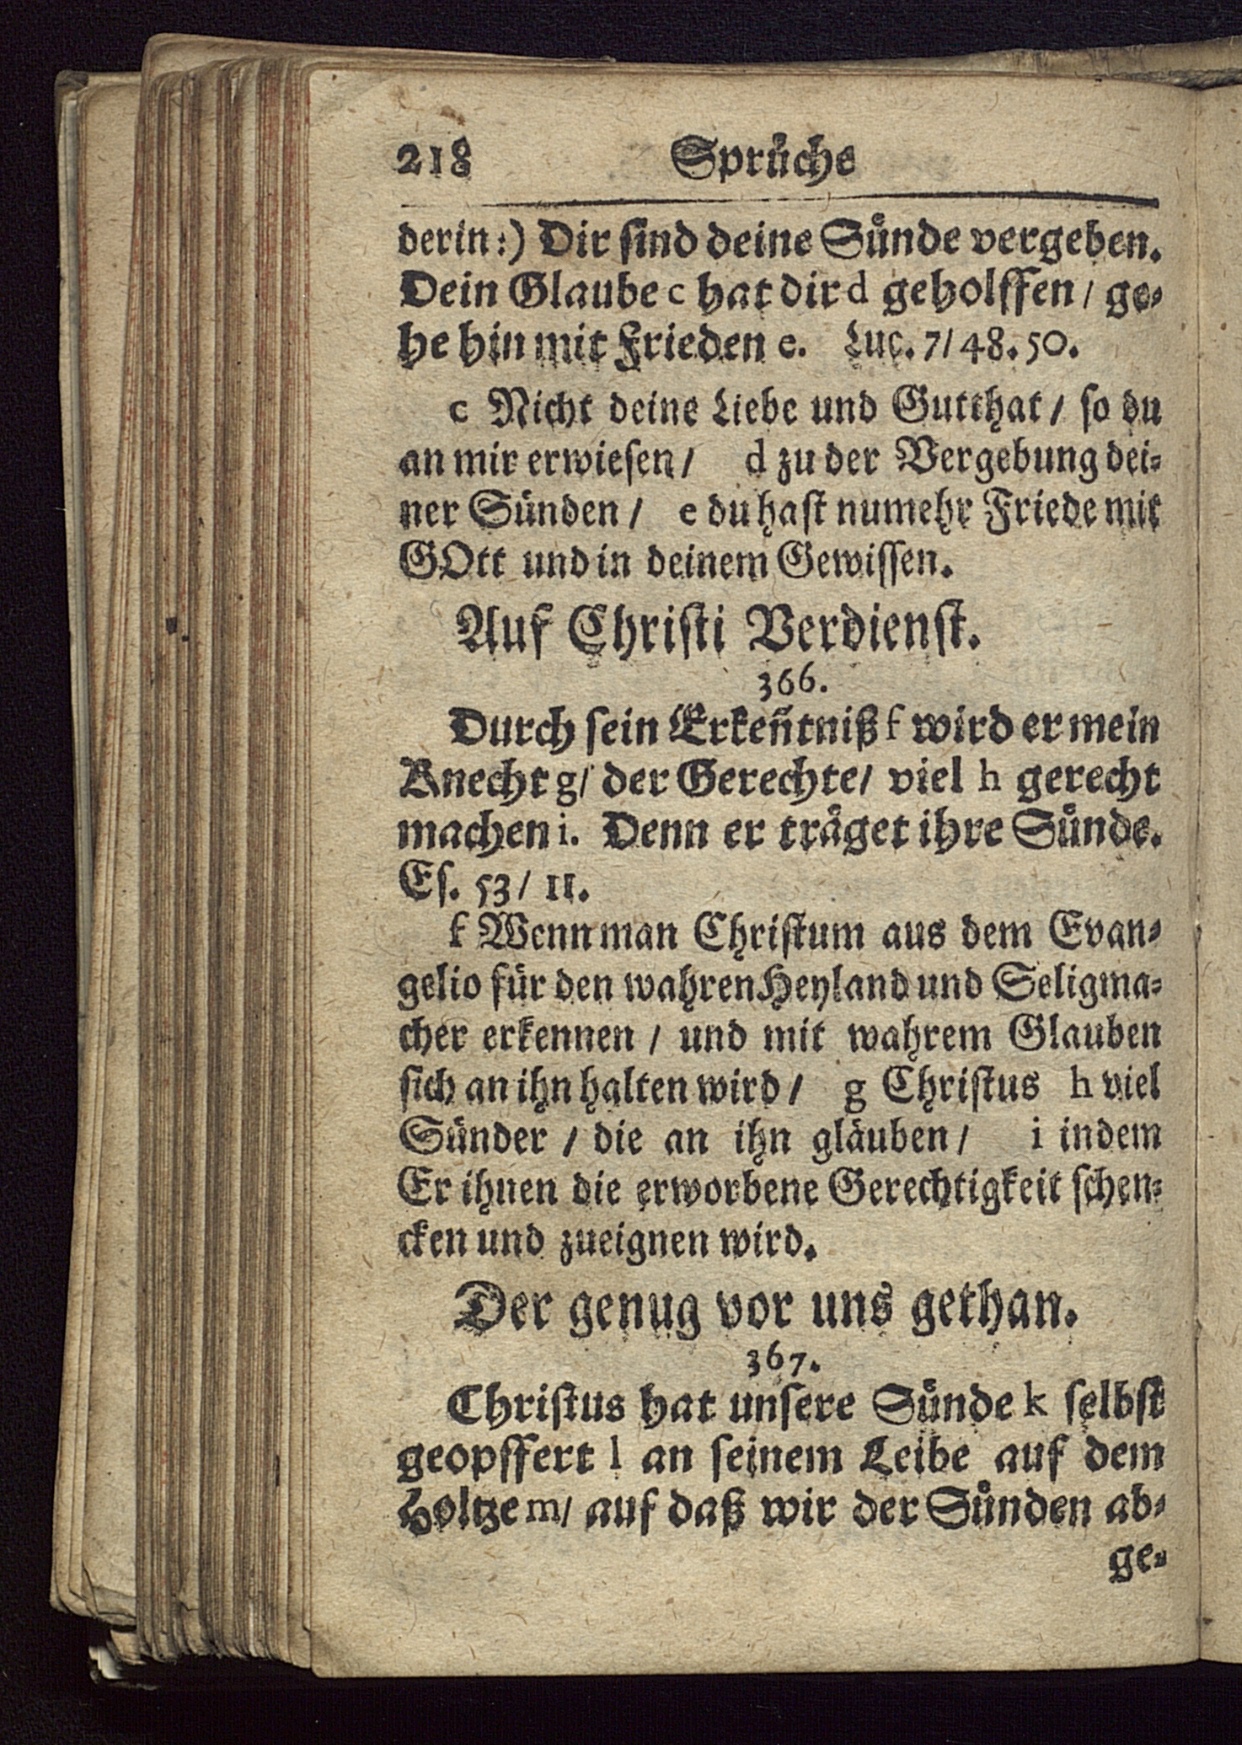 218 Sprüche
derin:) Dir sind deine Sünde vergeben.
Dein Glaube c hat dir d geholffen / ge-
he hin mit Frieden e. Luc. 7/ 48. 50.
c Nicht deine Liebe und Gutthat / so du
an mir erwiesen / d zu der Vergebung dei-
ner Sünden / e du hast numehr Friede mit
GOtt und in deinem Gewissen.
Auf Christi Verdienst.
366.
Durch sein Erkeñtniß f wird er mein
Knecht g/ der Gerechte/ viel h gerecht
machen i. Denn er träget ihre Sünde.
Es. 53 / 11.
f Wenn man Christum aus dem Evan-
gelio für den wahren Heyland und Seligma-
cher erkennen / und mit wahrem Glauben
sich an ihn halten wird / g Christus h viel
Sünder / die an ihn gläuben / i indem
Er ihnen die erworbene Gerechtigkeit schen-
cken und zueignen wird.
Der genug vor uns gethan.
367.
Christus hat unsere Sünde k selbst
geopffert l an seinem Leibe auf dem
Holtze m/ auf daß wir der Sünden ab-
ge-